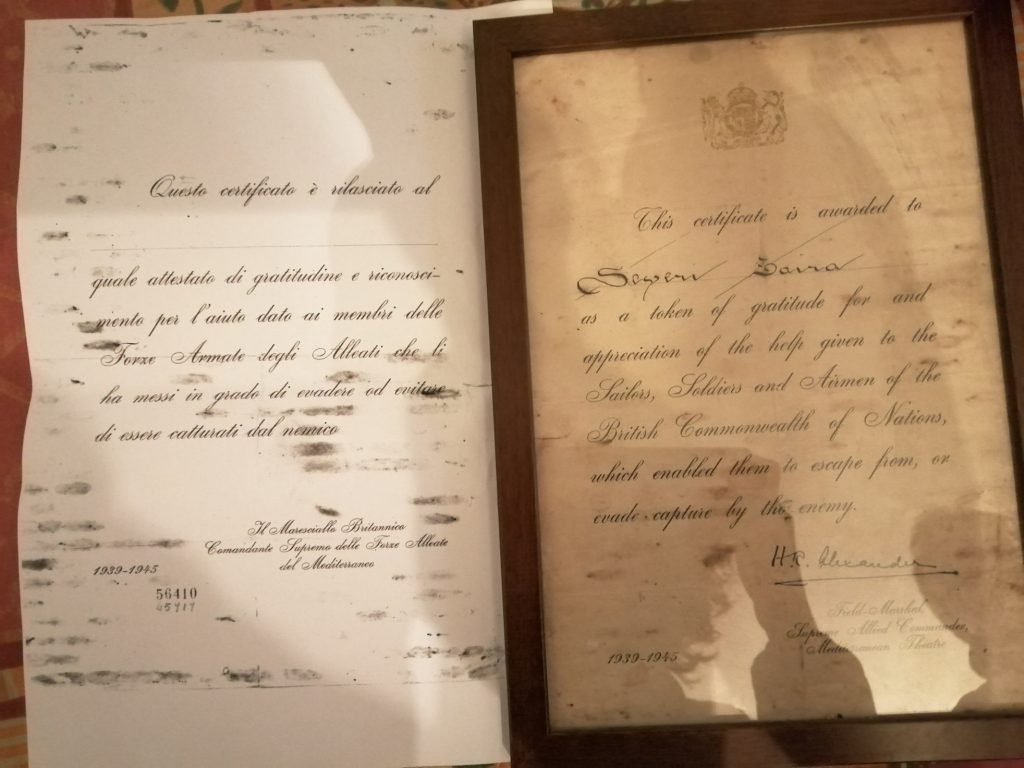 Questo certificato è rilasciato al
quale attestato di gratitudine e riconosci-
mento per l'aiuto dato ai membri delle
Forze Armate degli Alleati che li
ha messi in grado di evadere od evitare
di essere catturati dal nemico
Il Maresciallo Britannico
Comandante Supremo delle Forze Alleate
del Mediterraneo
1939-1945
56410
45917
This certificate is awarded to
Severi Zaira
as a token of gratitude for and
appreciation of the help given to the
Sailors, Soldiers and Airmen of the
British Commonwealth of Nations,
which enabled them to escape from, or
evade capture by the enemy.
H.R. Alexander
Field-Marshal,
Supreme Allied Commander,
Mediterranean Theatre
1939-1945